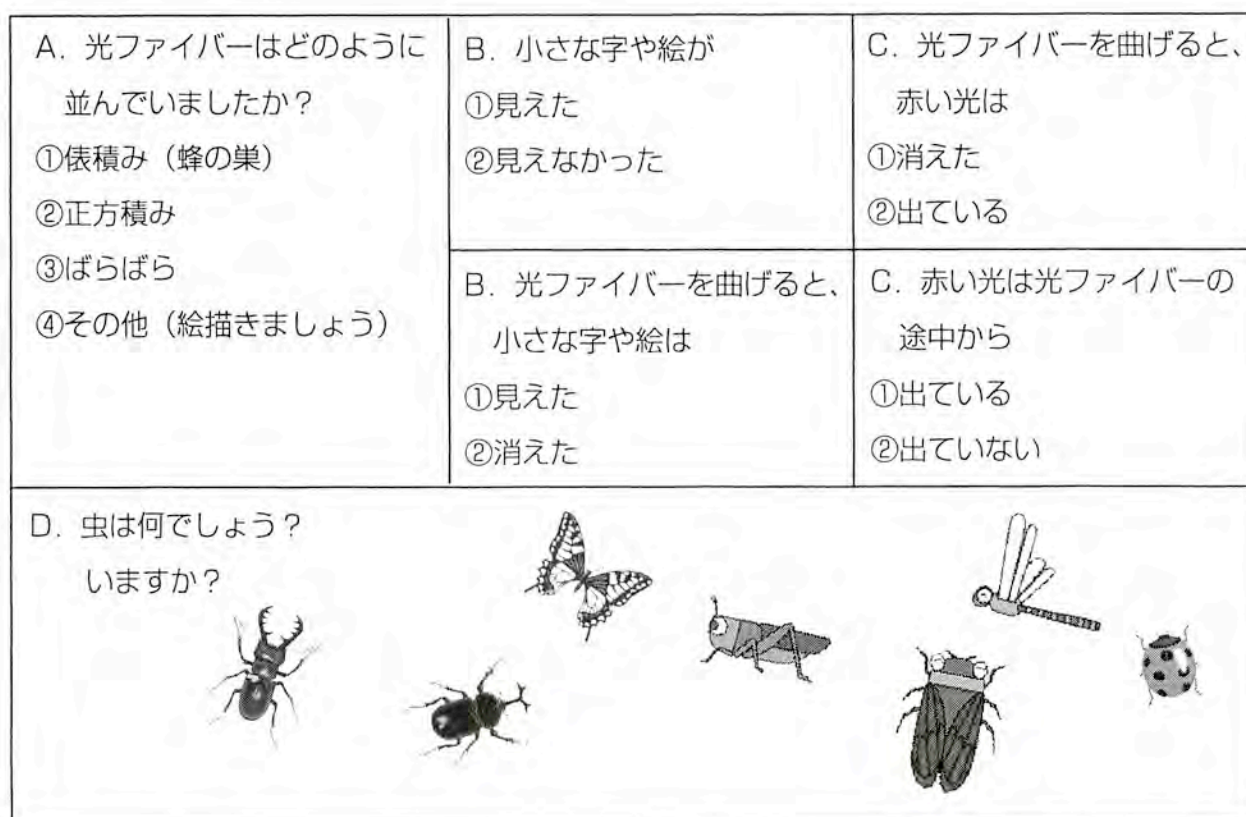 A. 光ファイバーはどのように
並んでいましたか？
①俵積み（蜂の巣）
②正方積み
③ばらばら
④その他（絵描きましょう）
B. 小さな字や絵が
①見えた
②見えなかった
C. 光ファイバーを曲げると、
赤い光は
①消えた
②出ている
B. 光ファイバーを曲げると、
小さな字や絵は
①見えた
②消えた
C. 赤い光は光ファイバーの
途中から
①出ている
②出ていない
D. 虫は何でしょう？
いますか？